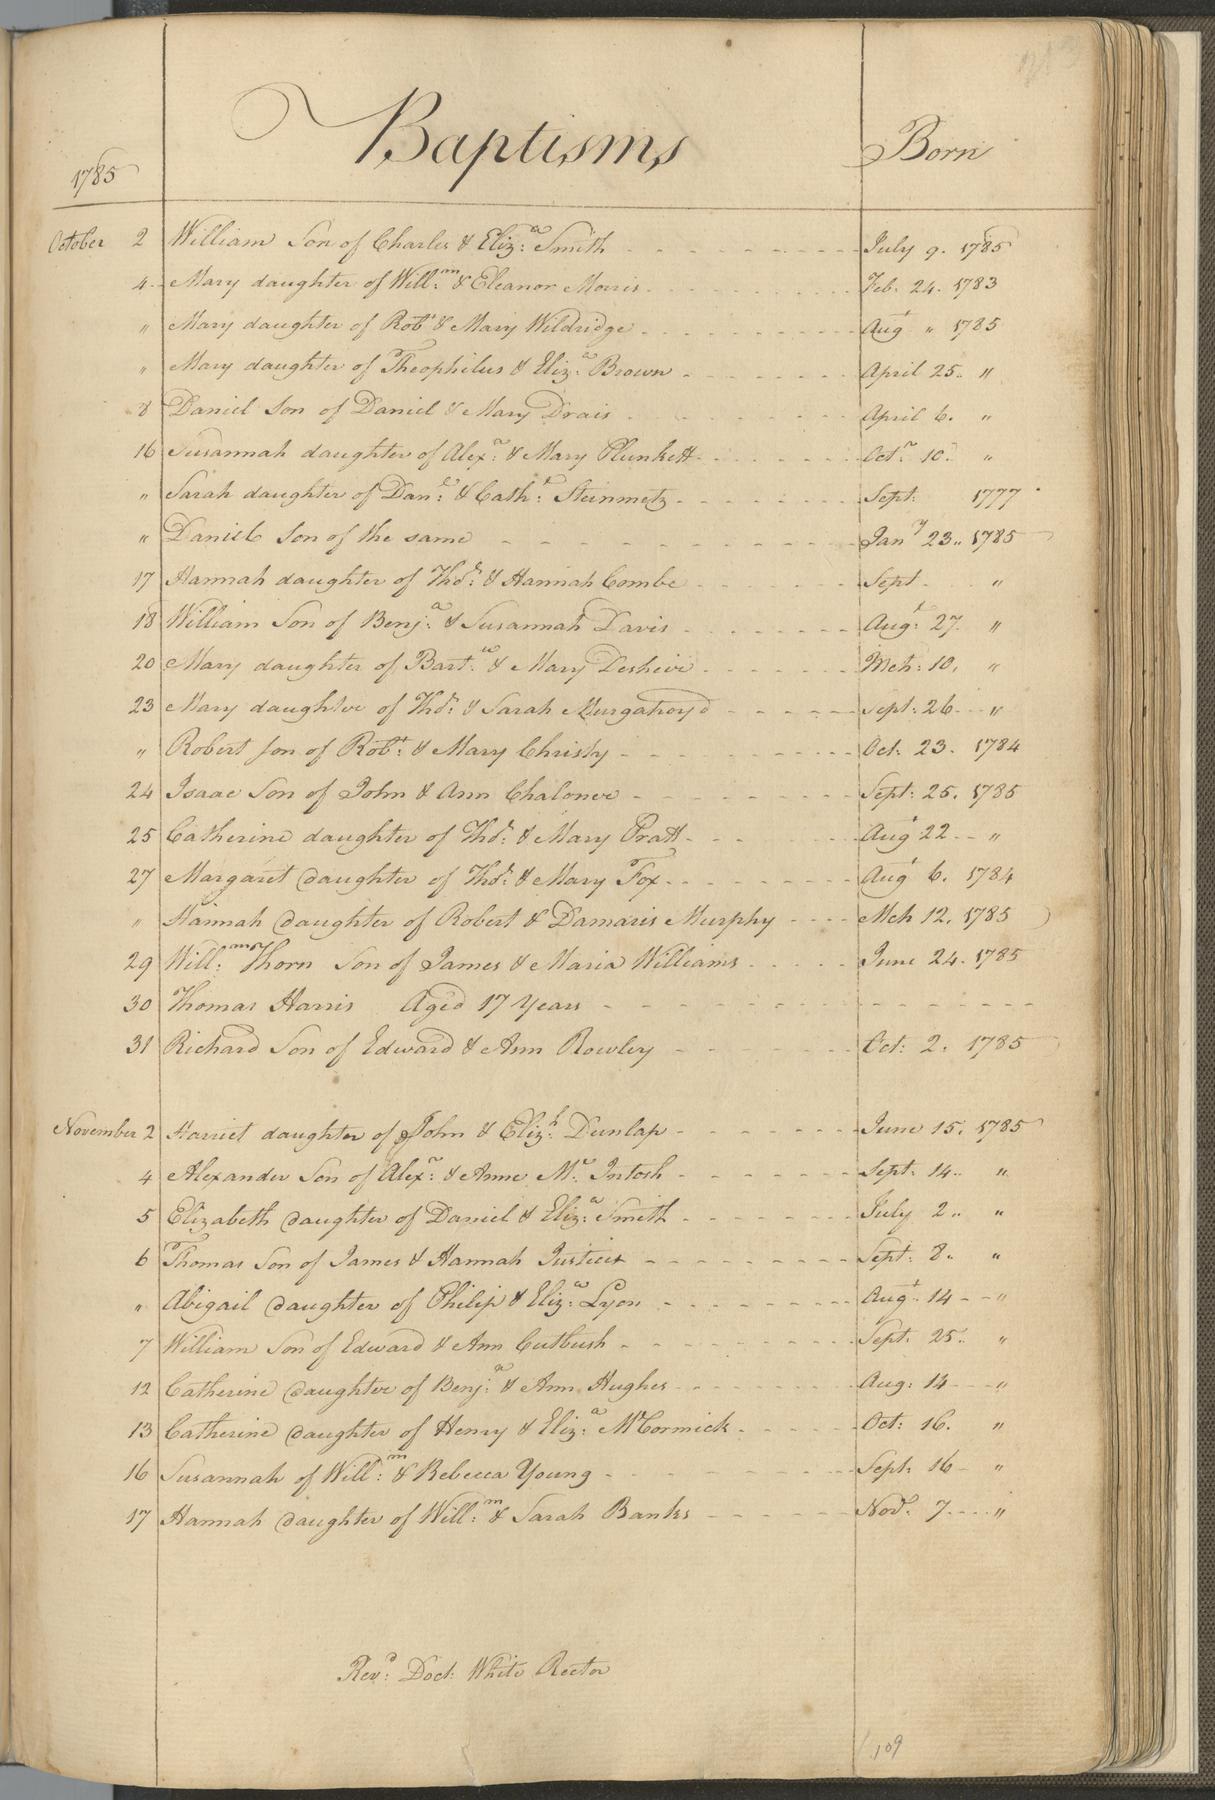 Baptisms Born
1785
October 2 William Son of Charles & Eliz:a Smith July 9. 1785
4 Mary daughter of Will:m & Eleanor Morris Feb: 24. 1783
" Mary daughter of Robt & Mary Wildridge Augt " 1785
" Mary daughter of Theophilus & Eliz:a Brown April 25. "
8 Daniel Son of Daniel & Mary Drais April 6. "
16 Susannah daughter of Alex:r & Mary Plunkett Oct:r 10. "
" Sarah daughter of Dan:l & Cath:e Steinmetz Sept: 1777
" Daniel Son of the same Jany 23. 1785
17 Hannah daughter of Thos: & Hannah Combe Sept "
18 William Son of Benj:a & Susannah Davis Aug:t 27. "
20 Mary daughter of Bart:w & Mary Mch: 10. "
23 Mary daughter of Thos: & Sarah Murgatroyd Sept: 26 "
" Robert Son of Robt: & Mary Christy Oct: 23. 1784
24 Isaac Son of John & Ann Chaloner Sept: 25. 1785
25 Catherine daughter of Thos: & Mary Pratt Augt 22 "
27 Margaret daughter of Thos: & Mary Fox Augt 6. 1784
" Hannah daughter of Robert & Damaris Murphy Mch 12. 1785
29 Will:m Thorn Son of James & Maria Williams June 24. 1785
30 Thomas Harris Aged 17 Years
31 Richard Son of Edward & Ann Rowley Oct: 2. 1785
November 2 Harriet daughter of John & Eliz:h Dunlap June 15. 1785
4 Alexander Son of Alex:r & Anne Mc Intosh Sept: 14. "
5 Elizabeth daughter of Daniel & Eliz:a Smith July 2. "
6 Thomas Son of James & Hannah Justice Sept: 8. "
" Abigail daughter of Philip & Eliz:a Lyon Augt 14 "
7 William Son of Edward & Ann Cutbush Sept: 25. "
12 Catherine daughter of Benj:a & Ann Hughes Aug: 14 "
13 Catherine daughter of Henry & Eliz:a McCormick Oct: 16. "
16 Susannah of Will:m & Rebecca Young Sept: 16 "
17 Hannah daughter of Will:m & Sarah Banks Novr 7 "
Revd: Doct: White Rector
109